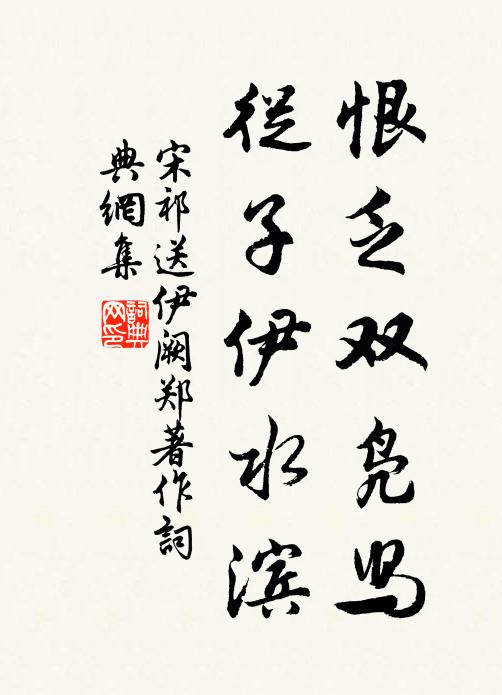 恨乏双凫舄
從子伊水滨
宋祁送伊阙郑著作詞
典網集
詞典
网印